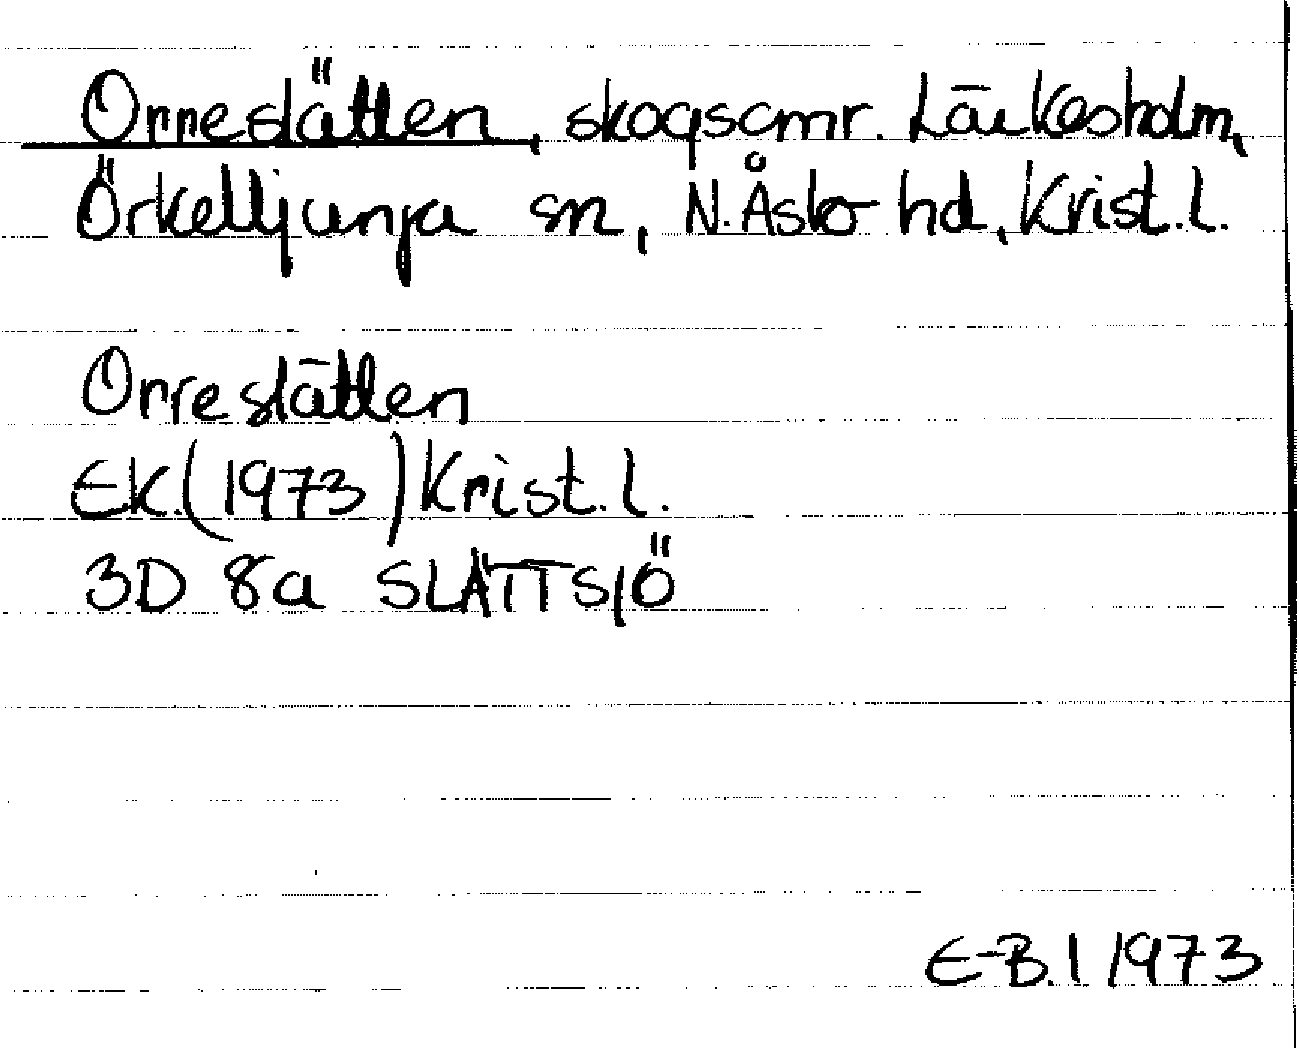 Orreslätten, skogsomr. Lärkesholm,
Örkelljunga sn, N. Åsbo hd, Krist. l.
Orreslätten
EK. (1973) Krist. l.
3D 8a SLÄTTSJÖ
E-B.I 1973